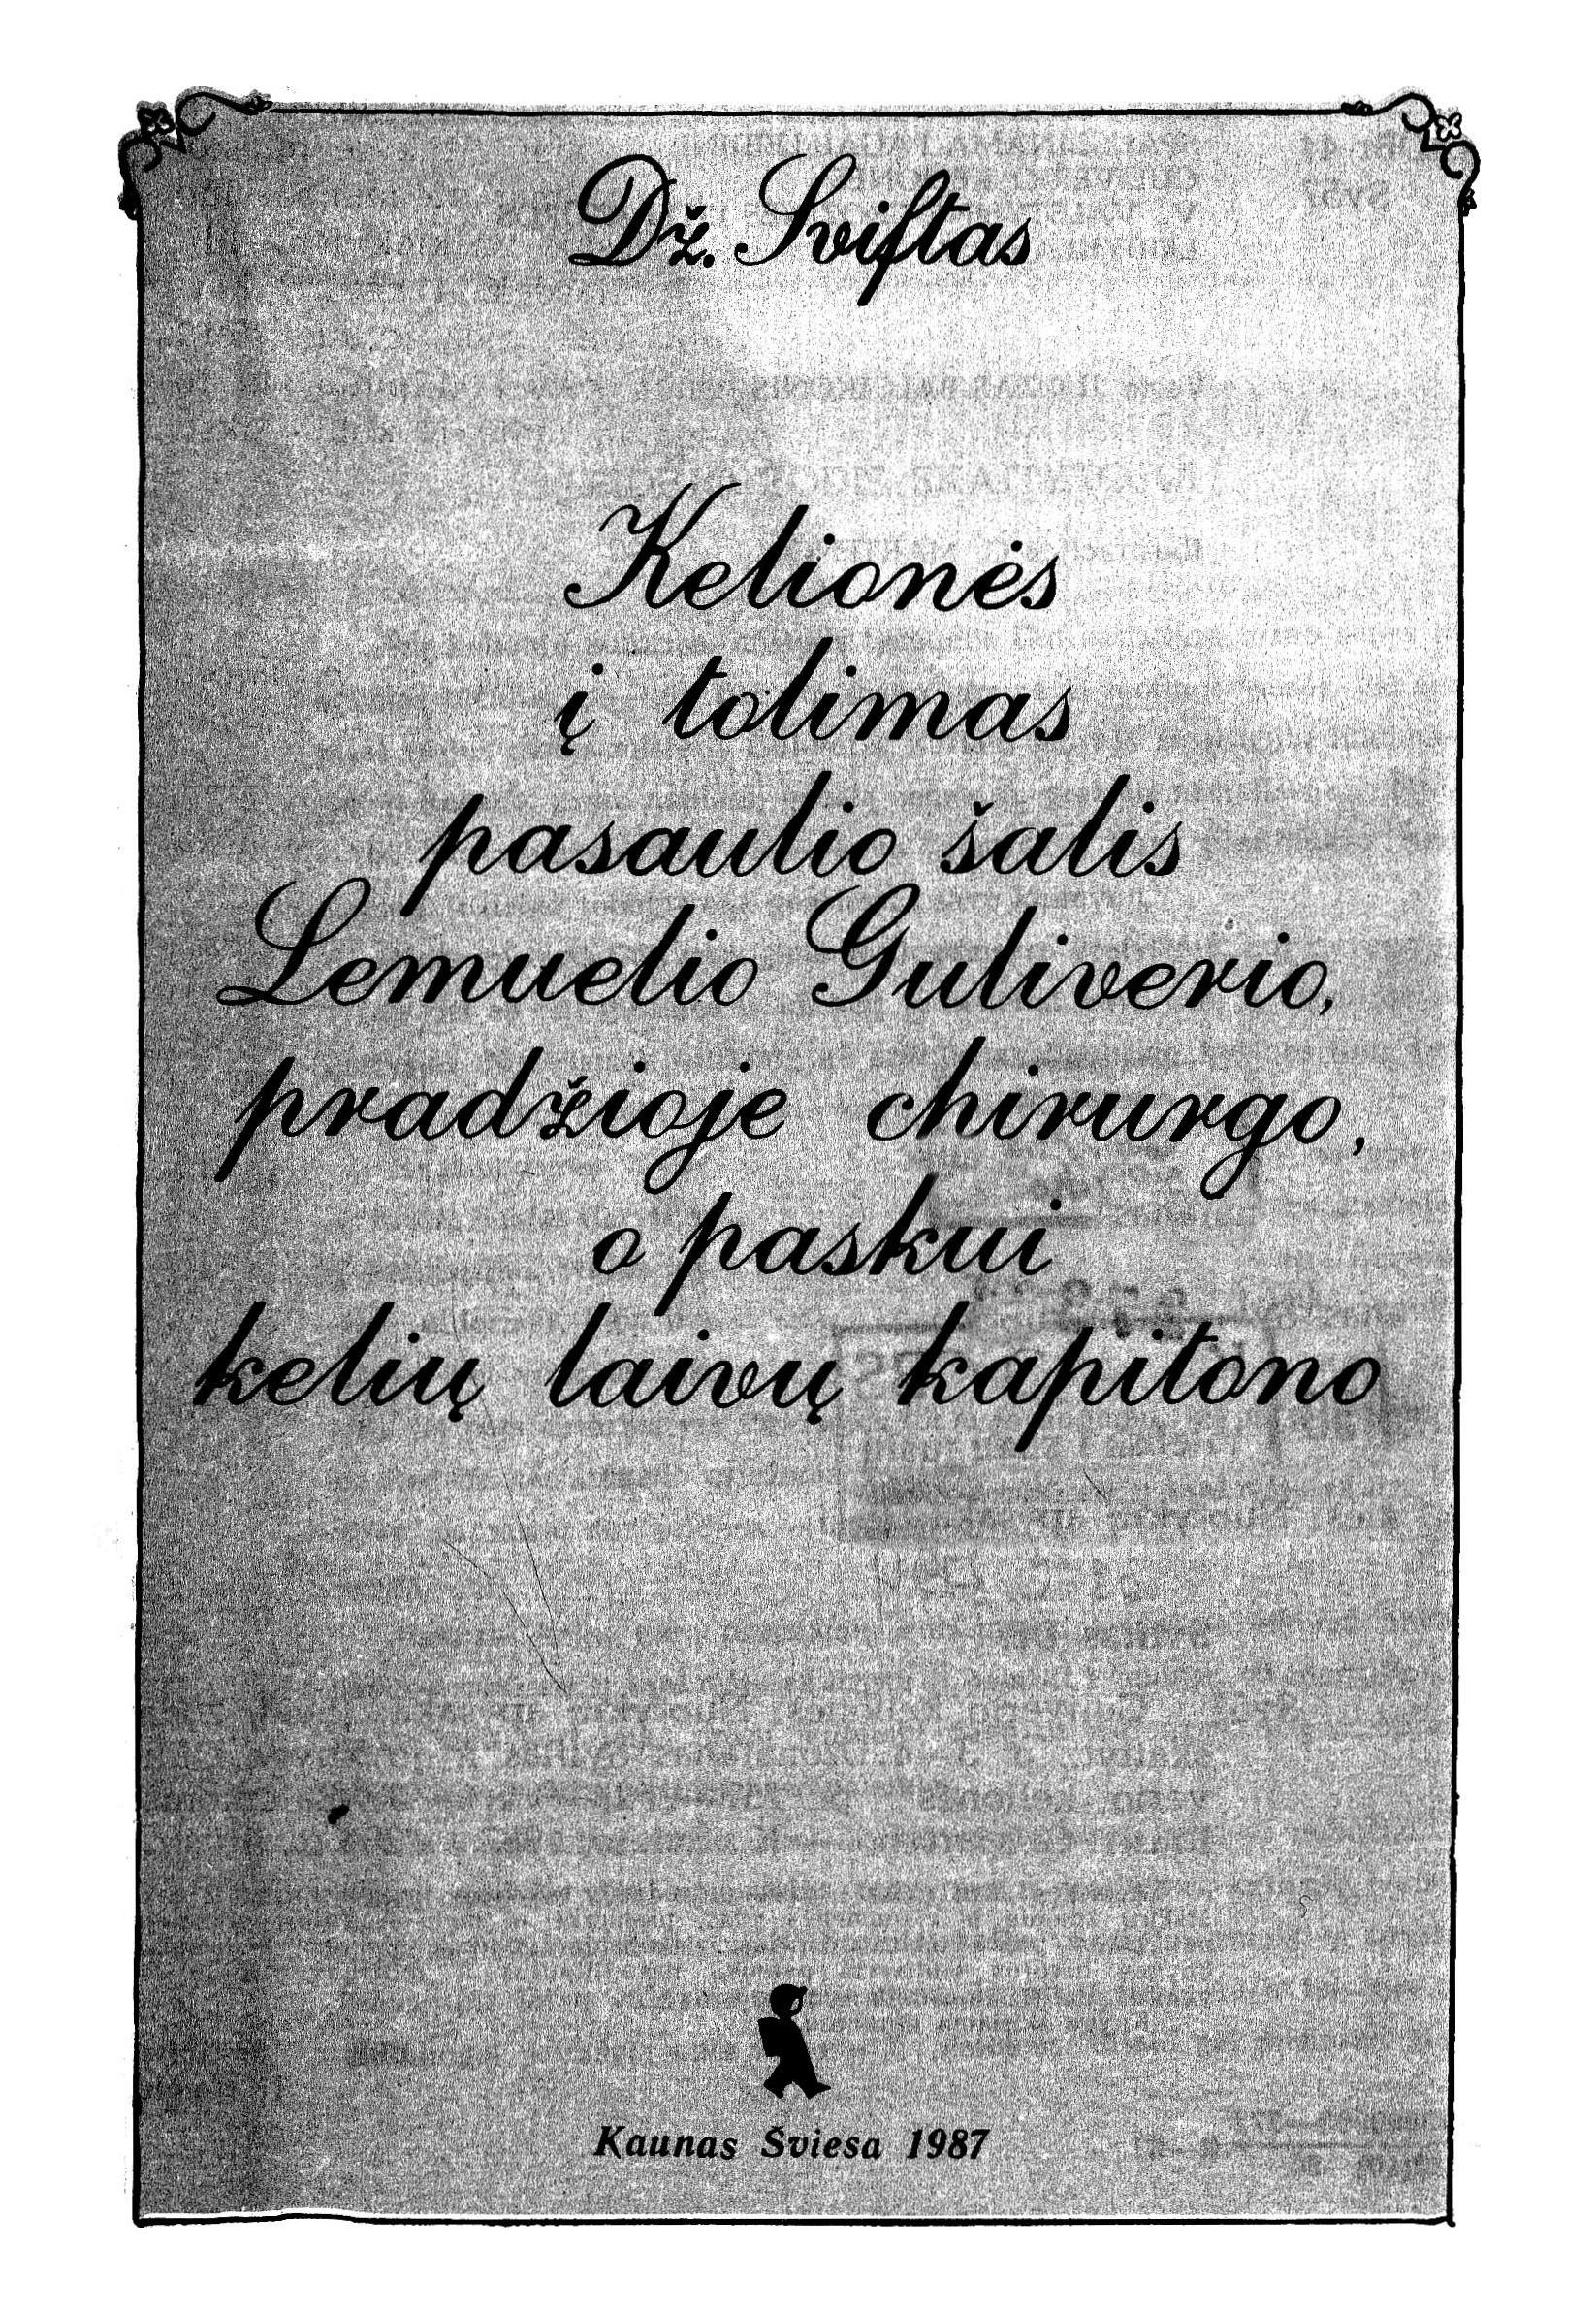 Dž. Sviftas
Kelionės
į tolimas
pasaulio šalis
Lemuelio Guliverio,
pradžioje chirurgo,
o paskui
kelių laivų kapitono
Kaunas Šviesa 1987